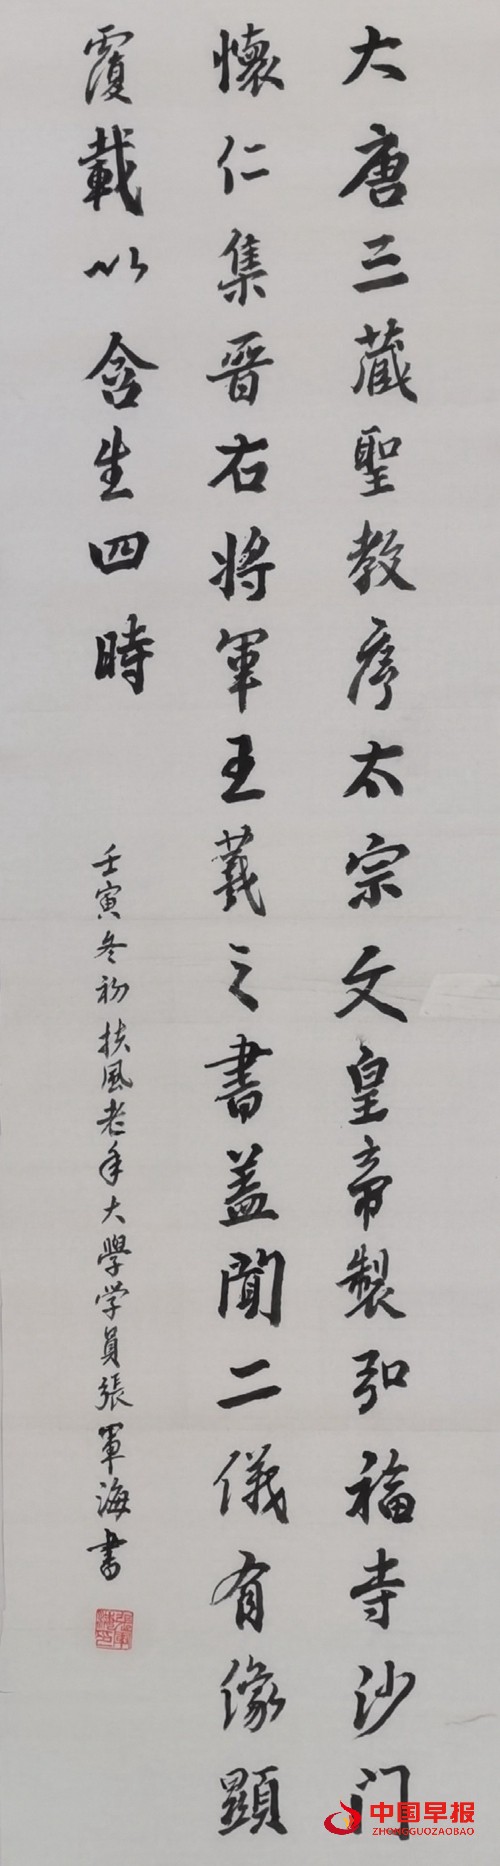 大唐三藏聖教序太宗文皇帝製弘福寺沙门
懷仁集晉右将軍王羲之書盖聞二儀有像顯
覆載以含生四時
壬寅冬初扶風老年大學学員張軍海書
中国早报
ZHONGGUOZAOBAO